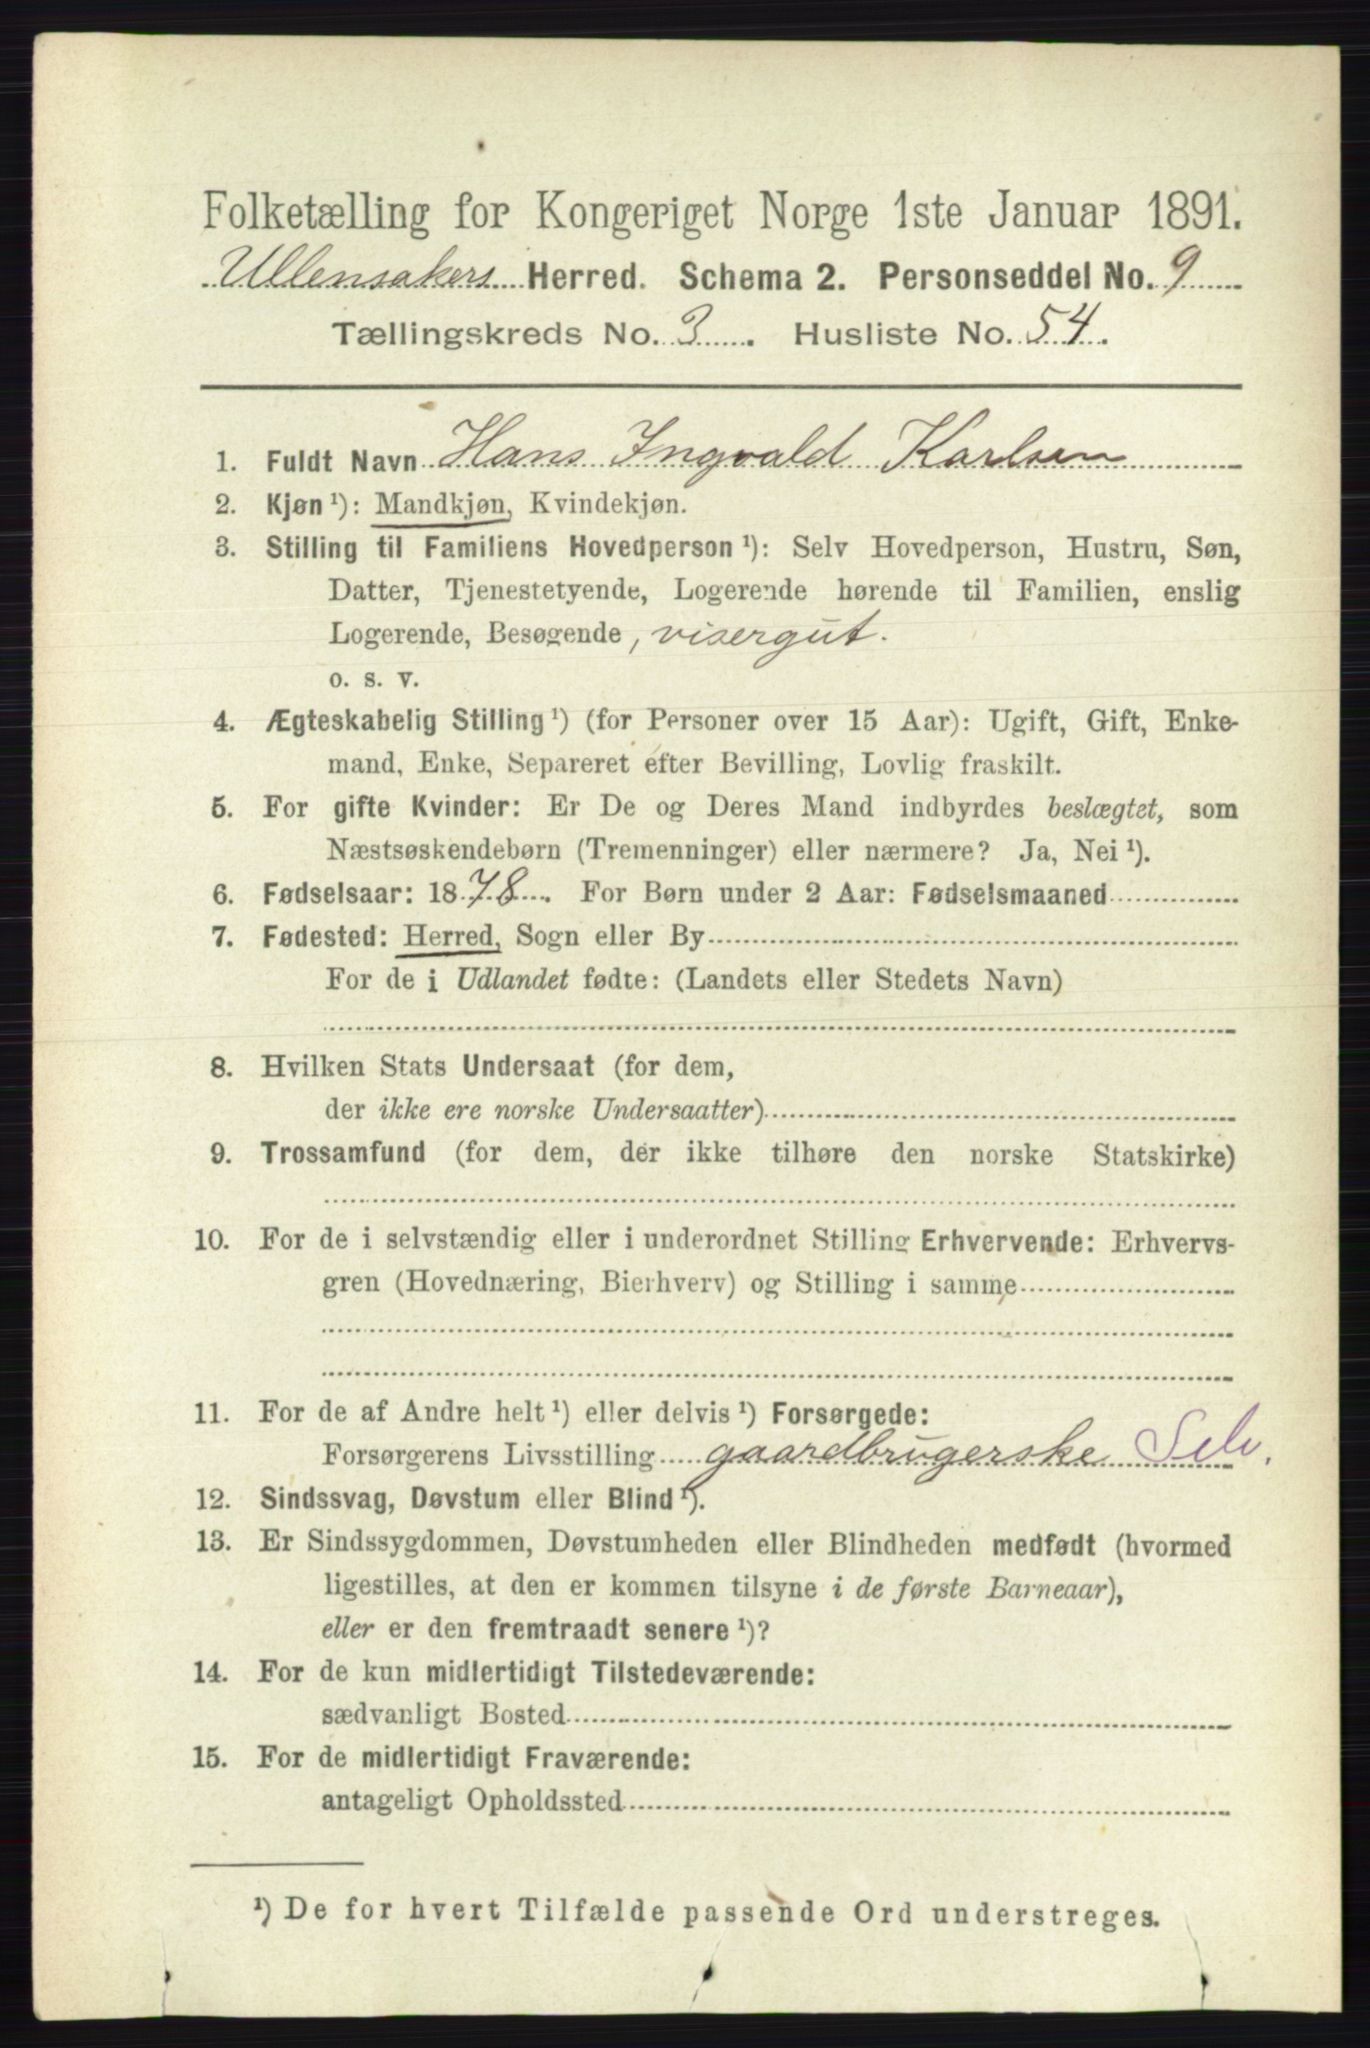 Folketælling for Kongeriget Norge 1ste Januar 1891.
Ullensakers Herred. Schema 2. Personseddel No. 9
Tællingskreds No. 3. Husliste No. 54.
1. Fuldt Navn Hans Ingvald Karlsen
2. Kjøn¹): Mandkjøn, Kvindekjøn.
3. Stilling til Familiens Hovedperson¹): Selv Hovedperson, Hustru, Søn,
Datter, Tjenestetyende, Logerende hørende til Familien, enslig
Logerende, Besøgende, visergut.
o. s. v.
4. Ægteskabelig Stilling¹) (for Personer over 15 Aar): Ugift, Gift, Enke-
mand, Enke, Separeret efter Bevilling, Lovlig fraskilt.
5. For gifte Kvinder: Er De og Deres Mand indbyrdes beslægtet, som
Næstsøskendebørn (Tremenninger) eller nærmere? Ja, Nei¹).
6. Fødselsaar: 1878. For Børn under 2 Aar: Fødselsmaaned
7. Fødested: Herred, Sogn eller By
For de i Udlandet fødte: (Landets eller Stedets Navn)
8. Hvilken Stats Undersaat (for dem,
der ikke ere norske Undersaatter)
9. Trossamfund (for dem, der ikke tilhøre den norske Statskirke)
10. For de i selvstændig eller i underordnet Stilling Erhvervende: Erhvervs-
gren (Hovednæring, Bierhverv) og Stilling i samme
11. For de af Andre helt¹) eller delvis¹) Forsørgede:
Forsørgerens Livsstilling gaardbrugerske Selv.
12. Sindssvag, Døvstum eller Blind¹).
13. Er Sindssygdommen, Døvstumheden eller Blindheden medfødt (hvormed
ligestilles, at den er kommen tilsyne i de første Barneaar),
eller er den fremtraadt senere¹)?
14. For de kun midlertidigt Tilstedeværende:
sædvanligt Bosted
15. For de midlertidigt Fraværende:
antageligt Opholdssted
¹) De for hvert Tilfælde passende Ord understreges.